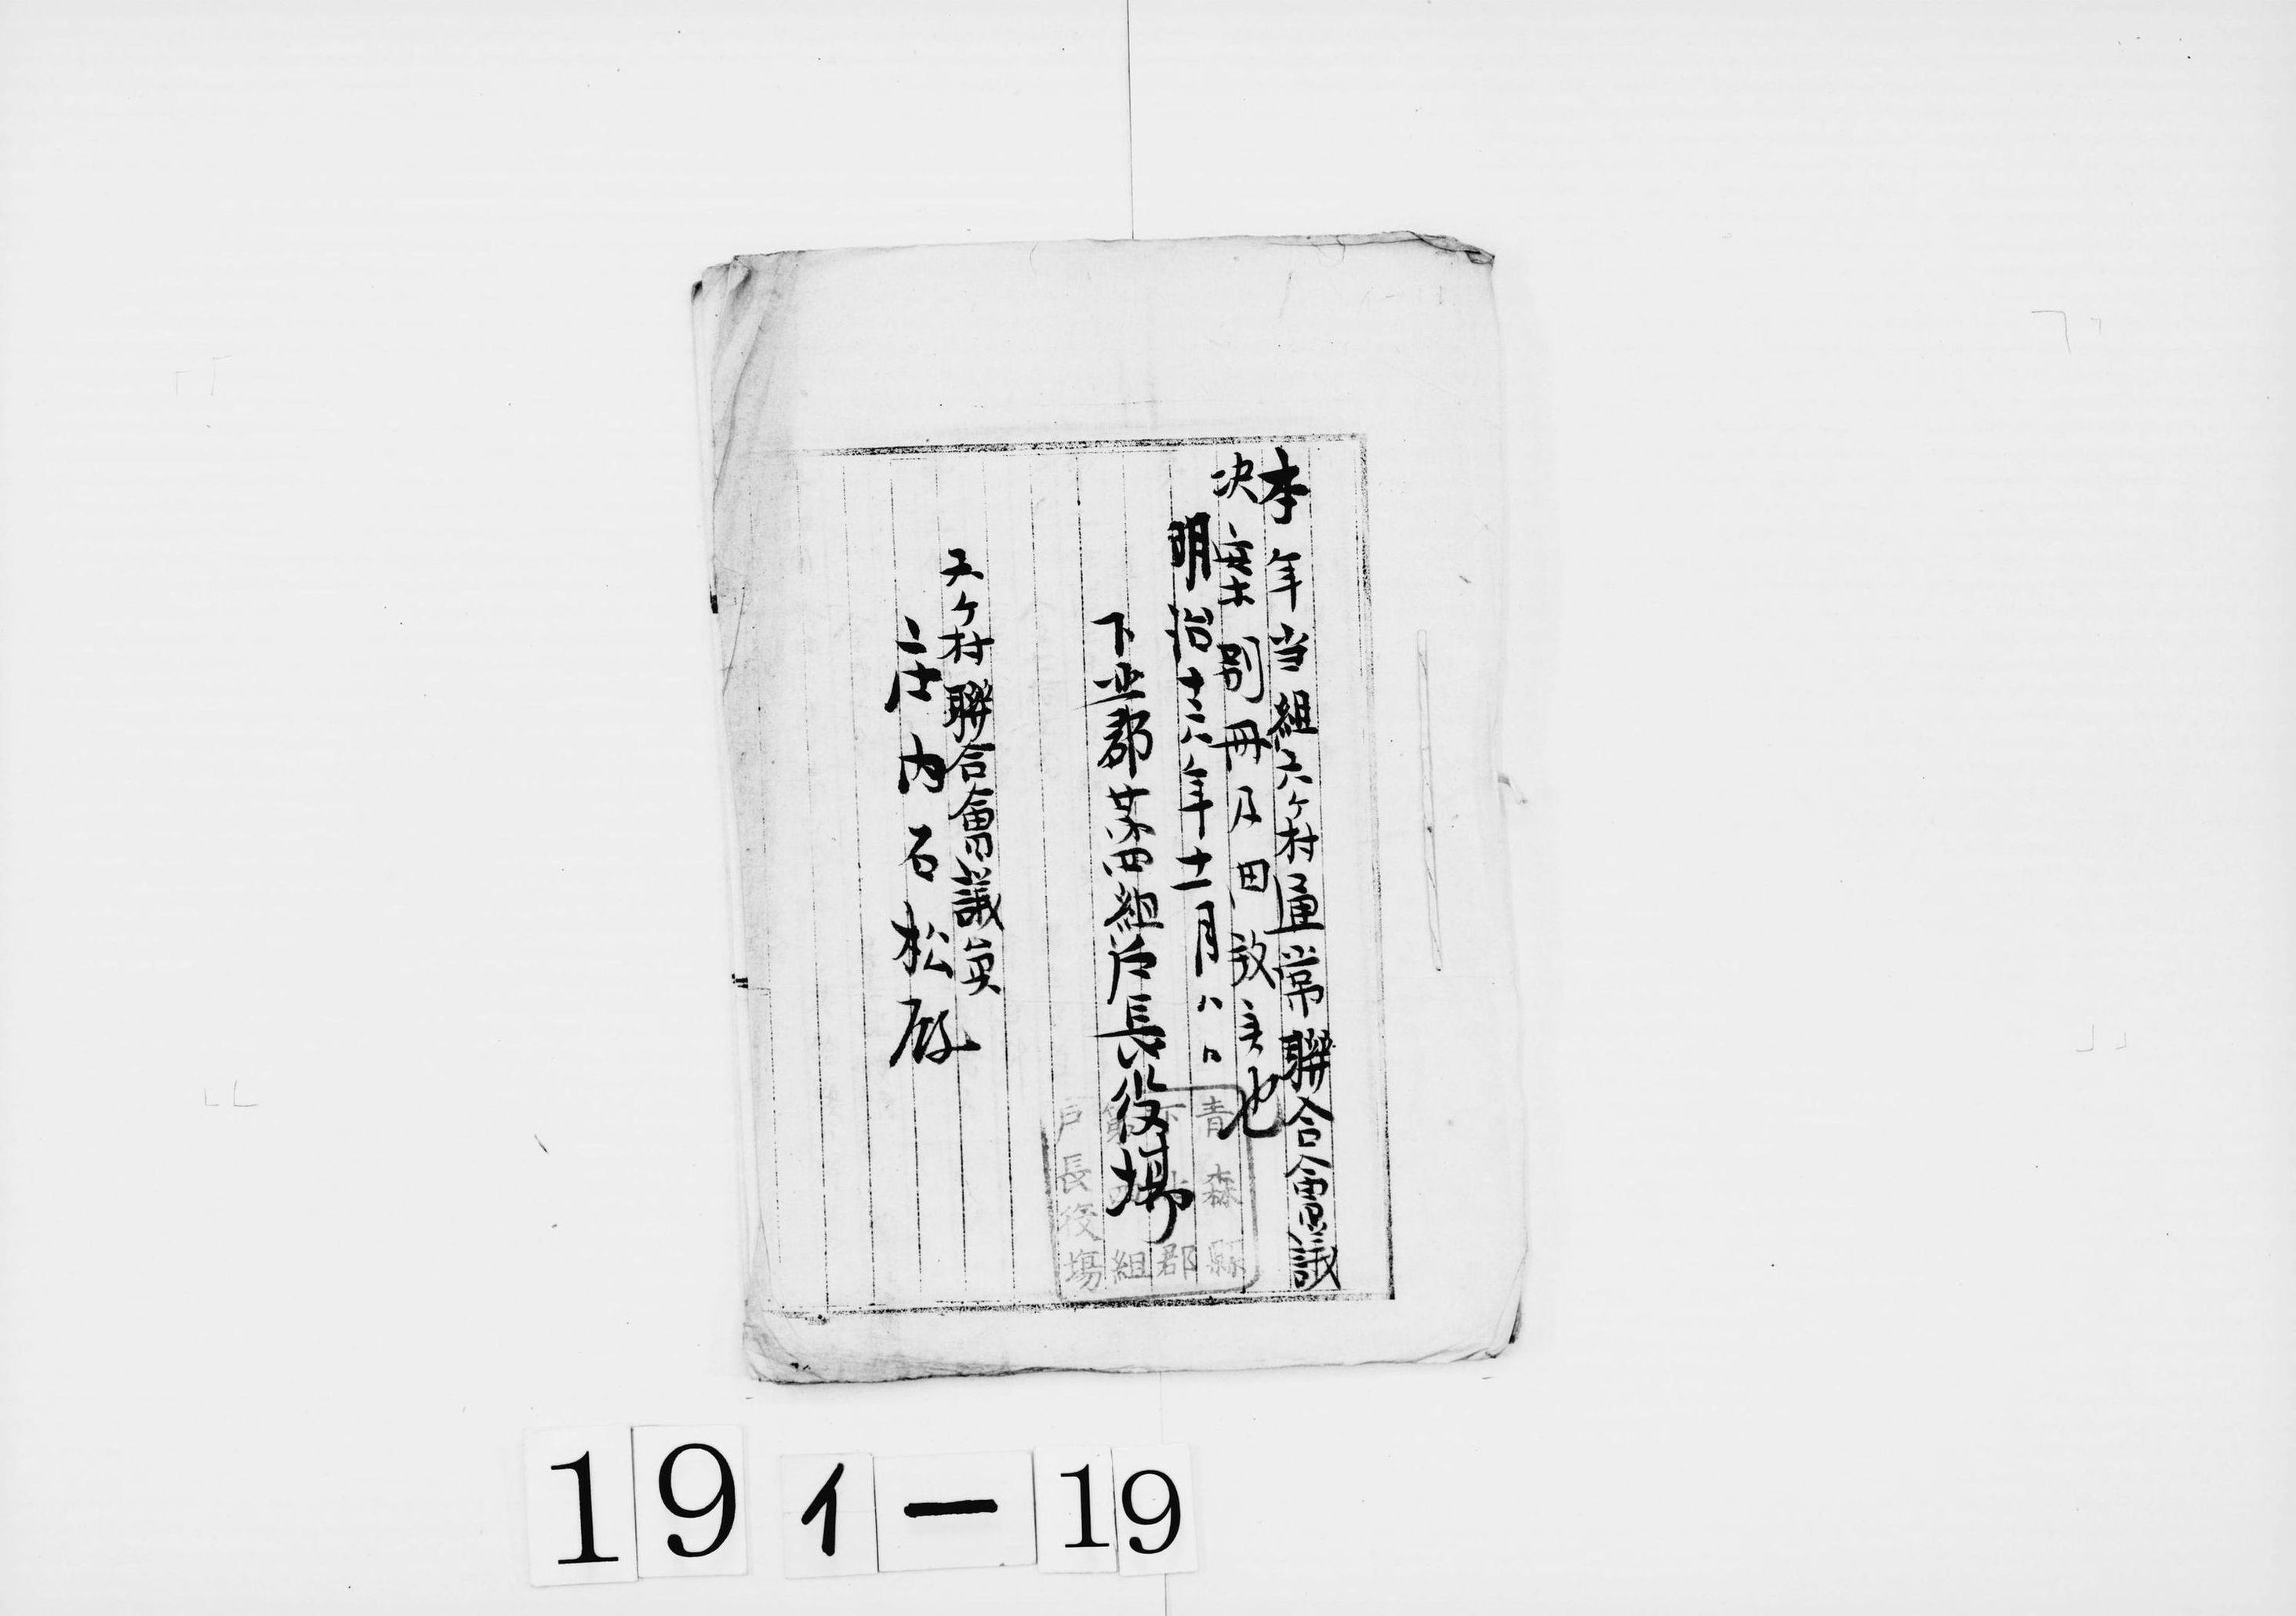 本年当組六ケ村通常聯合會議
決案別冊及囬致候也
明治十六年十一月八日
下北郡第四組戸長役場
青森縣
下北郡
第四組
戸長役場
六ケ村聯合會議員
庄内石松殿
19 イ - 19